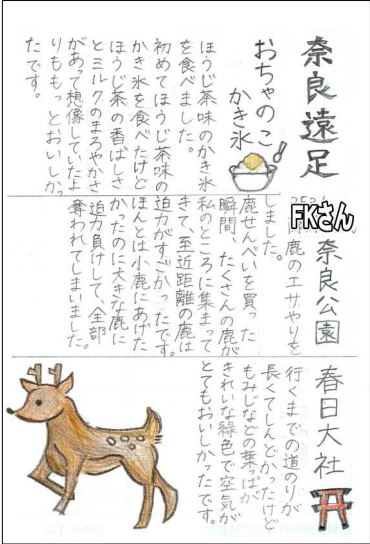 奈良遠足
おちゃのこ
かき氷
ほうじ茶味のかき氷
を食べました。
初めてほうじ茶味の
かき氷を食べたけど
ほうじ茶の香ばしさ
とミルクのまろやかさ
があって想像していたよ
りももっとおいしかっ
たです。
FKさん
奈良公園
鹿のエサやりを
しました。
鹿せんべいを買った
瞬間、たくさんの鹿が
私のところに集まって
きて、至近距離の鹿は
迫力がすごかったです。
ほんとは小鹿にあげた
かったのに大きな鹿に
迫力負けして、全部
奪われてしまいました。
春日大社
行くまでの道のりが
長くてしんどかったけど
もみじなどの葉っぱが
きれいな緑色で空気が
とてもおいしかったです。